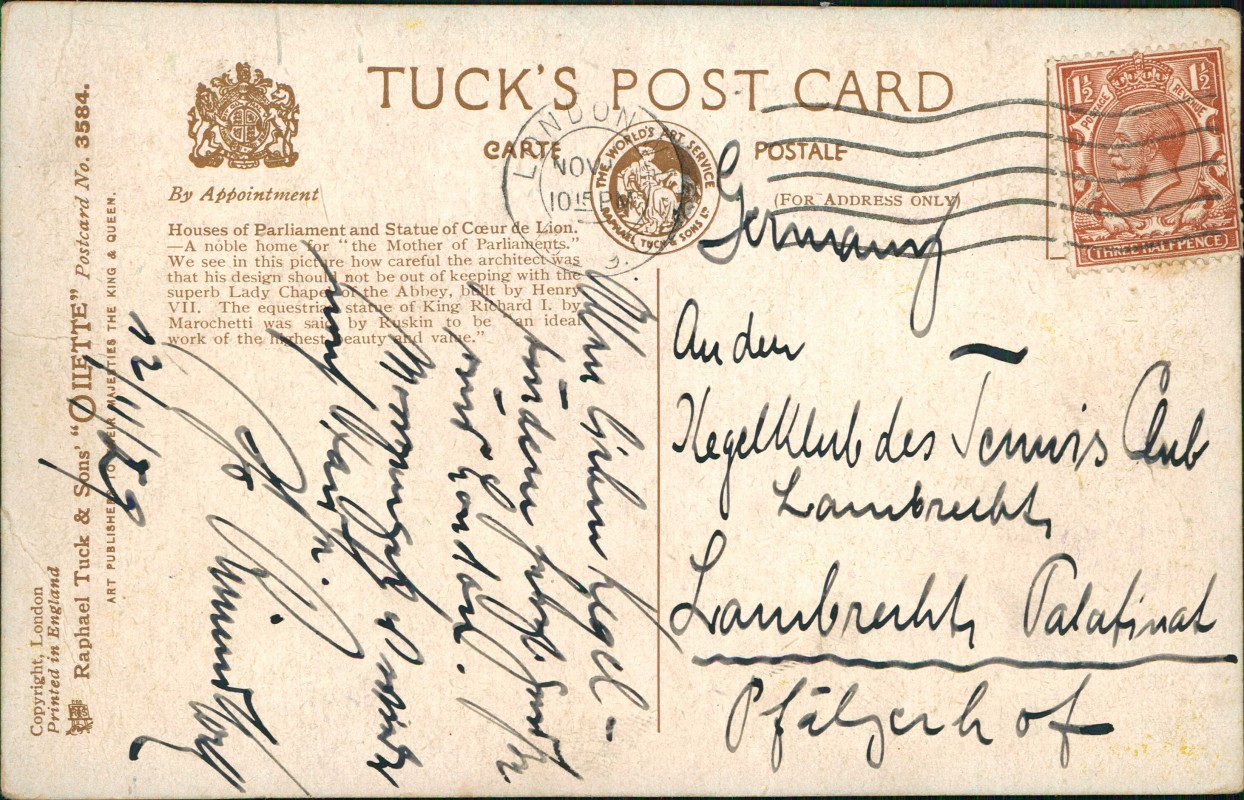 TUCK'S POST CARD
CARTE POSTALE
(FOR ADDRESS ONLY)
By Appointment
Houses of Parliament and Statue of Cœur de Lion.
—A noble home for "the Mother of Parliaments."
We see in this picture how careful the architect was
that his design should not be out of keeping with the
superb Lady Chapel of the Abbey, built by Henry
VII. The equestrian statue of King Richard I. by
Marochetti was said by Ruskin to be "an ideal
work of the highest beauty and value."
LONDON
NOV
1015 PM
THE WORLD'S ART SERVICE
RAPHAEL TUCK & SONS LD
1½ 1½
POSTAGE REVENUE
THREE HALFPENCE
Germany
An den
Kegelklub des Tennis Club
Lambrecht
Lambrecht, Palatinat
Pfälzerhof
Allen lieben Kegel-
brüdern
London.
12/11/29
Copyright, London
Printed in England
Raphael Tuck & Sons' "OILETTE" Postcard No. 3584.
ART PUBLISHERS TO THEIR MAJESTIES THE KING & QUEEN.